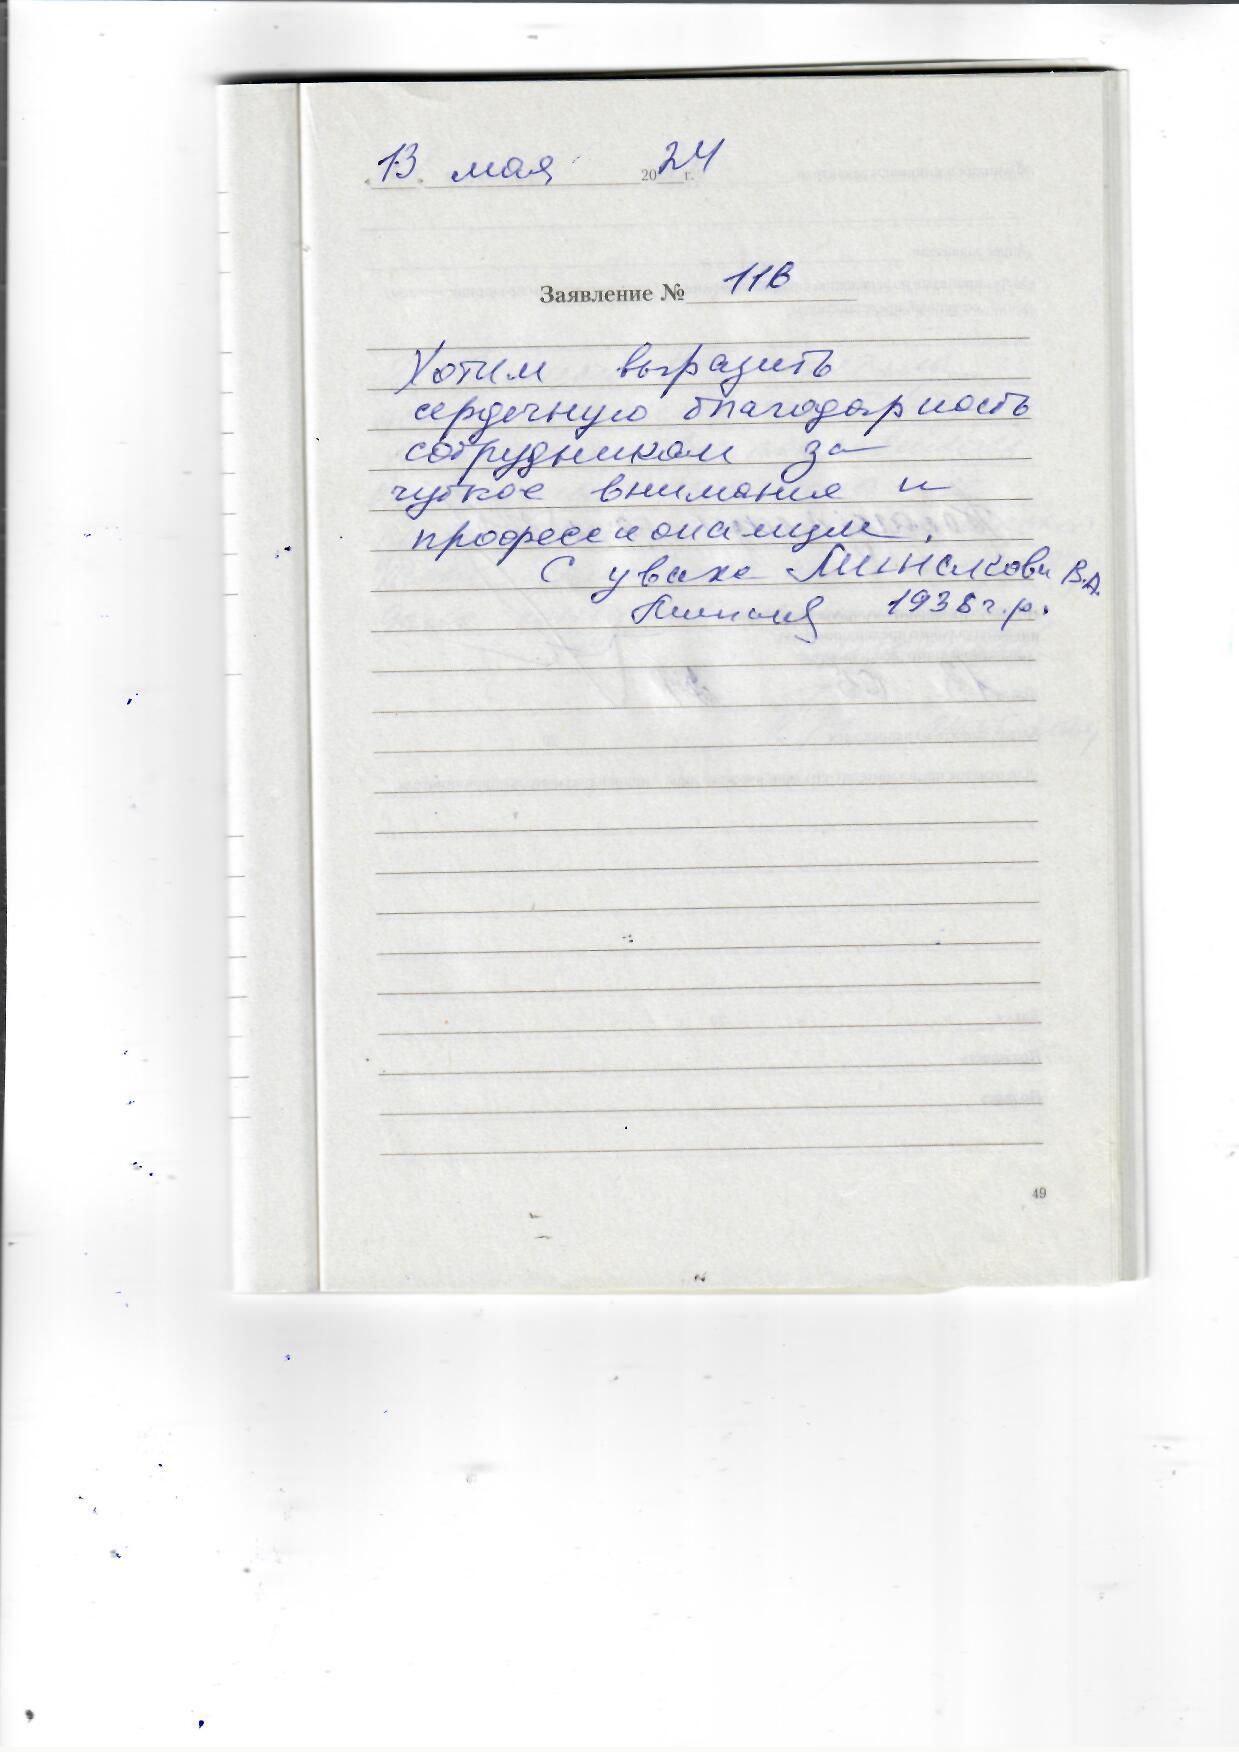 13 мая 2024 г.
Заявление № 11в
Хотим выразить
сердечную благодарность
сотрудникам за
чуткое внимание и
профессионализм.
С уваже В.А.
1938 г.р.
49